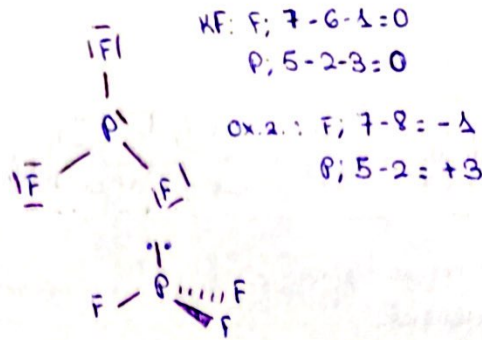 KF: F; 7-6-1=0
P; 5-2-3=0
Ox.z.: F; 7-8=-1
P; 5-2=+3
F
P
F F
P
F F
F